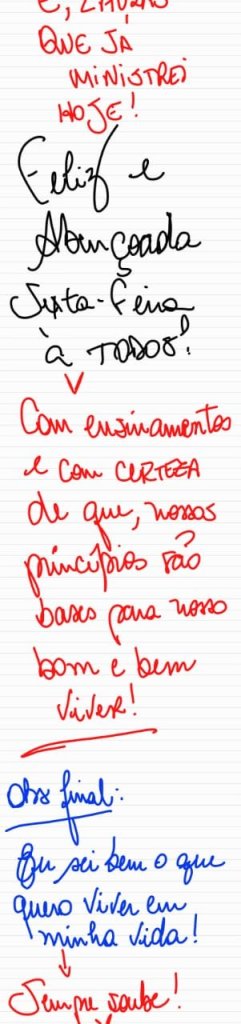 QUE JÁ
MINISTREI
HOJE!
Feliz e
Abençoada
Sexta-Feira
à TODOS!
Com ensinamentos
e com CERTEZA
de que, nossos
princípios são
bases para nosso
bom e bem
viver!
Obs final:
Eu sei bem o que
quero viver em
minha vida!
Sempre soube!